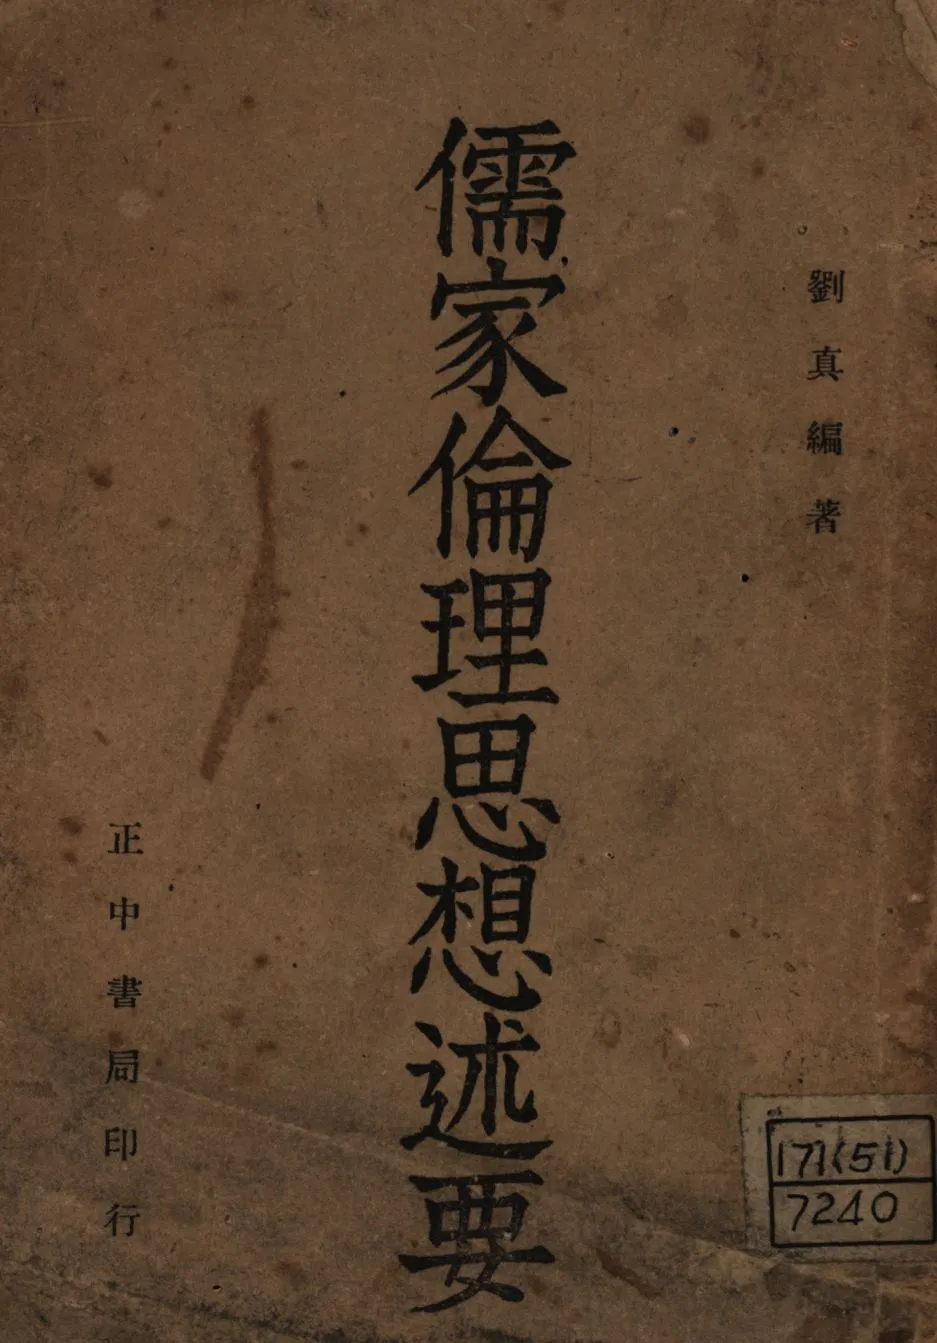 劉真編著
儒家倫理思想述要
正中書局印行
171(51)
7240